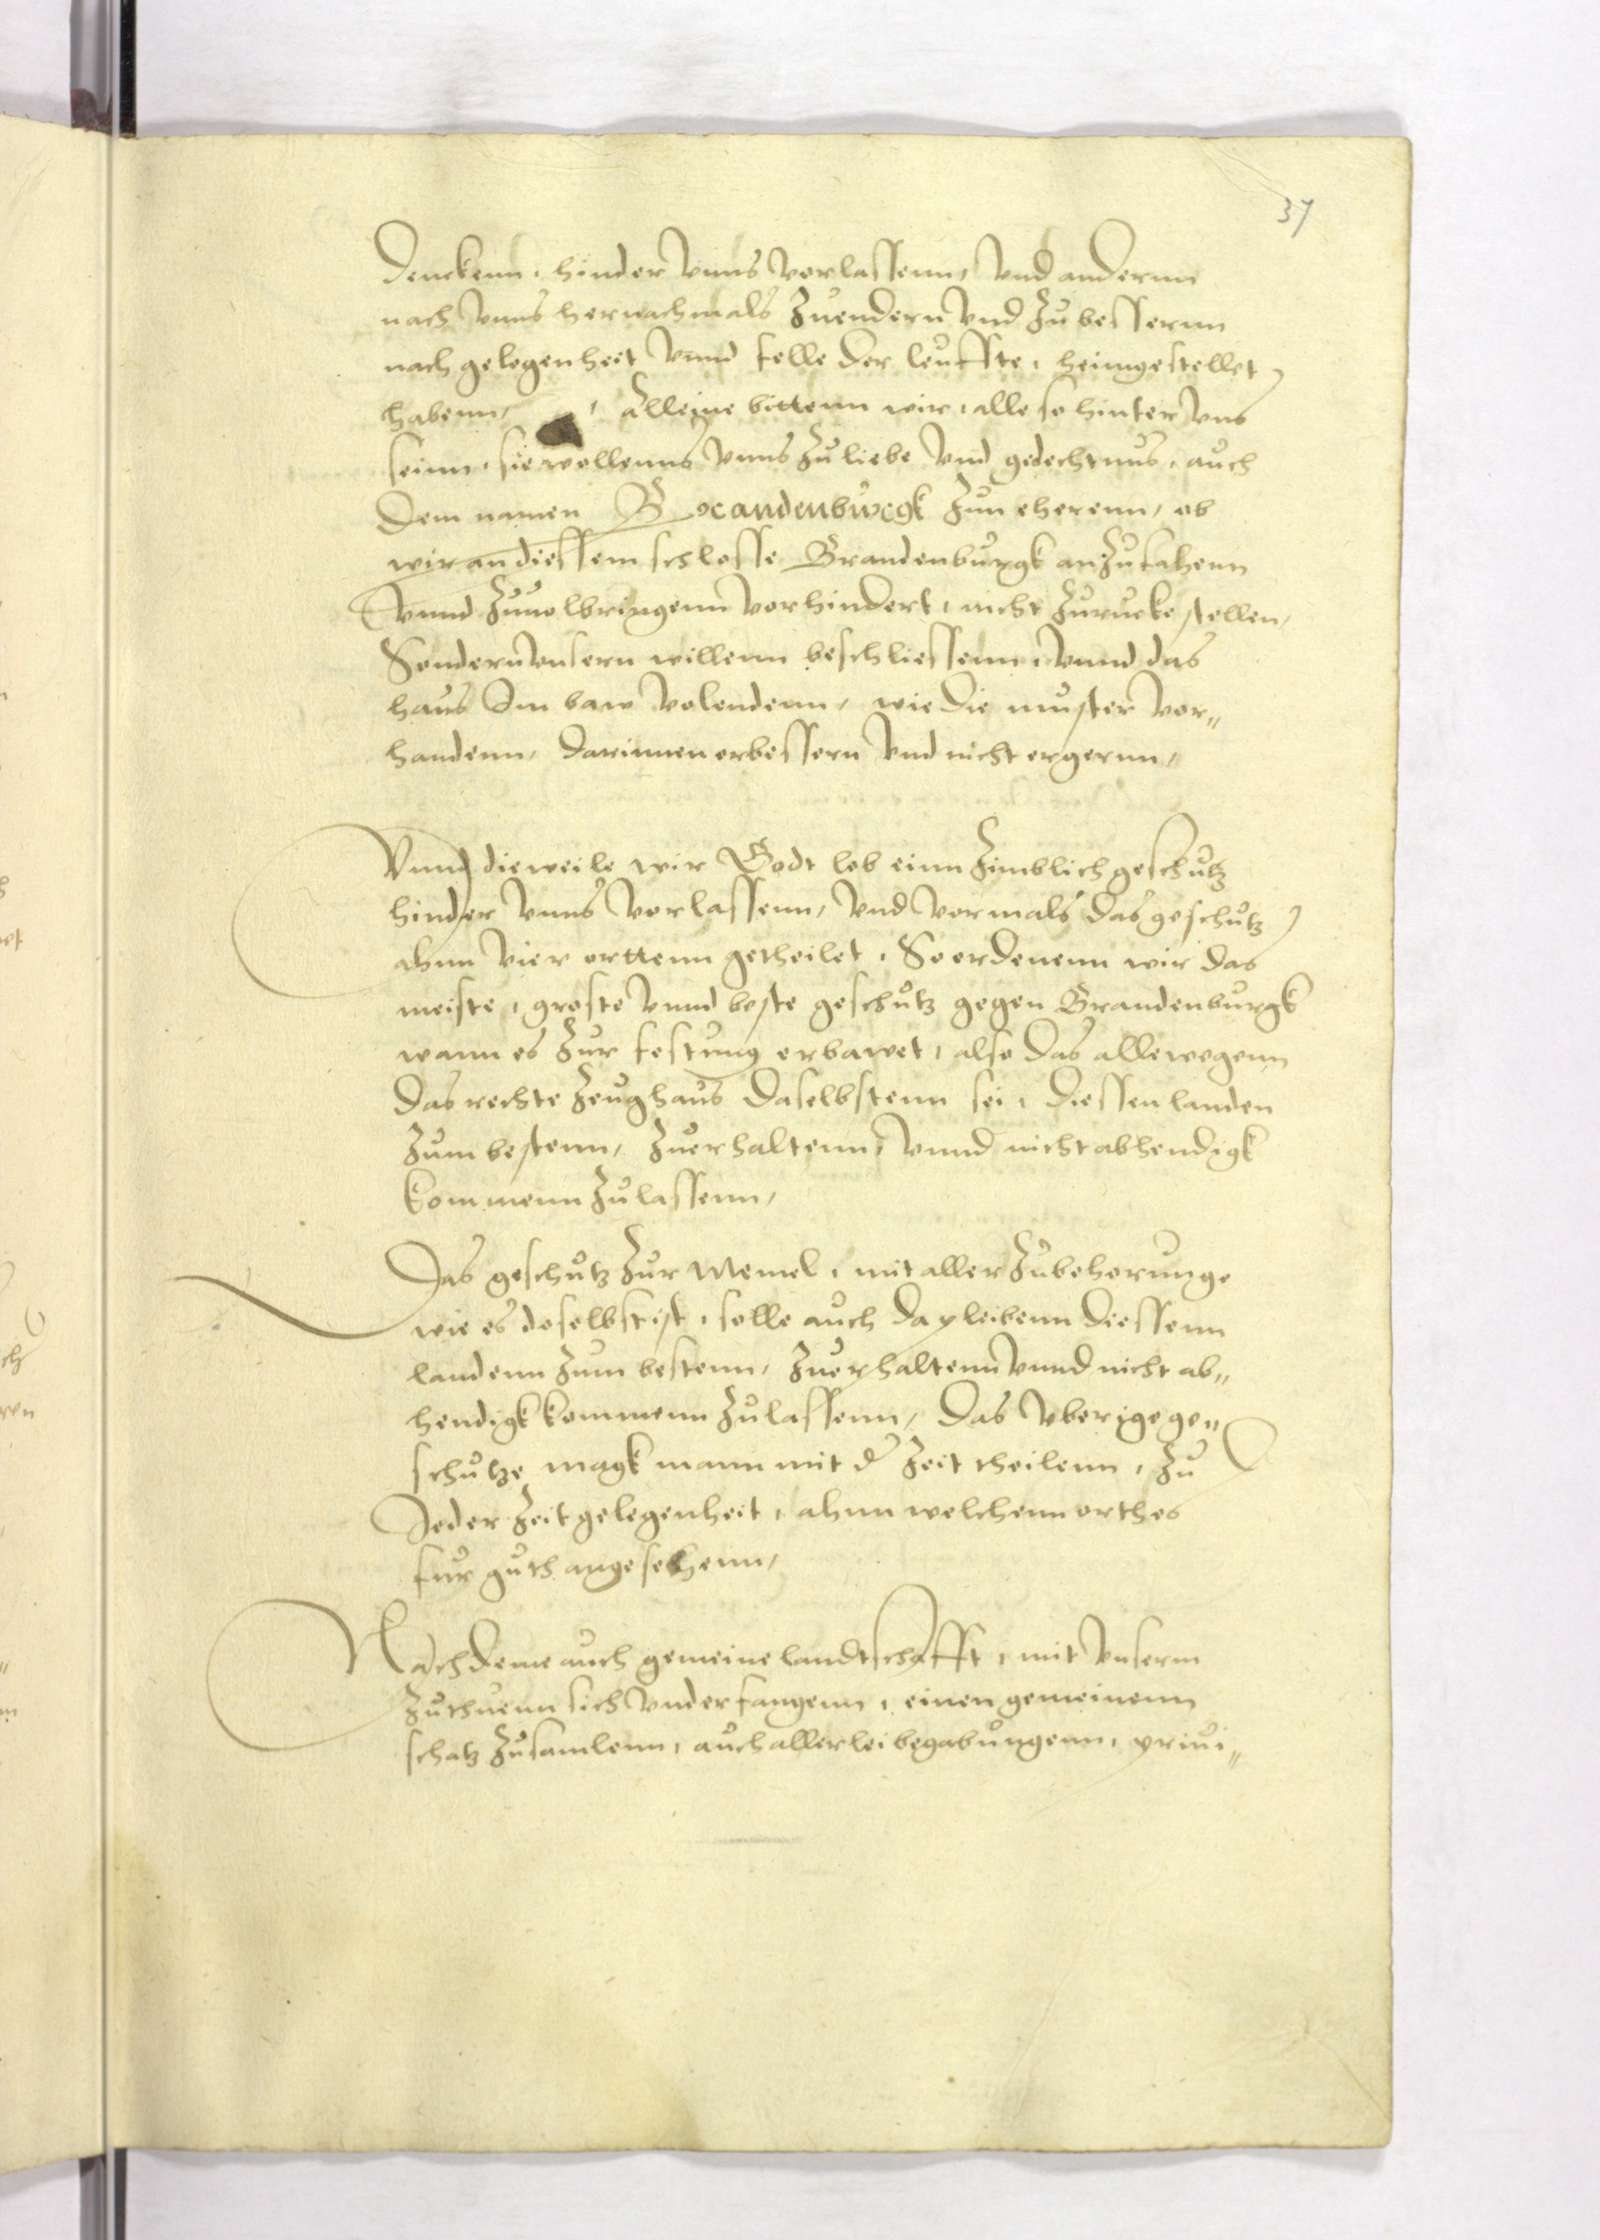 37
denckenn, hinder vnns vorlassenn, vnd anderenn
nach vnns hernachmals zuendern vnd zu bessernn
nach gelegenheit vnnd felle der leuffte, heimgestellet
habenn, Alleine bittenn wir, alle so hinter vns
seinn, sie wollenns vnns zu liebe vnd gedechtnus, auch
dem namen Brandenburgk zun eherenn, ob
wir an diessem schlosse Brandenburgk anzufahenn
vnnd zuuolbringenn vorhindert, nicht zurucke stellen,
Sondern vnsern willenn beschliessenn, vnnd das
haus Im baw volendenn, wie die muster vor„
handenn, darinnen erbessern vnd nicht ergernn,
Vnnd dieweile wir Godt lob einn zimblich geschutz
hinder vnns vorlassenn, vnd vormals das geschutz
ahnn vier orttenn getheilet, So ordenenn wir das
meiste, groste vnnd beste geschutz gegen Brandenburgk
wann es zur festung erbawet, also das allewegenn
das rechte zeughaus daselbstenn sei, diessen landen
zum bestenn, zuerhaltenn, vnnd nicht abhendigk
kommenn zulassenn,
Das geschutz zur Memel, mit aller zubehorunge
wie es doselbst ist, solle auch da pleibenn diessenn
landenn zum bestenn, zuerhaltenn vnnd nicht ab„
hendigk kommenn zulassenn, Das vberige ge„
schutze magk mann mit d zeit theilenn, zu
Jeder zeit gelegenheit, ahnn welchenn orth es
fur guth angesehenn,
Nachdeme auch gemeine landtschafft, mit vnserm
zuthuenn sich vnderfangenn, einen gemeinenn
schatz zusamlenn, auch allerlei begabungenn, priui„